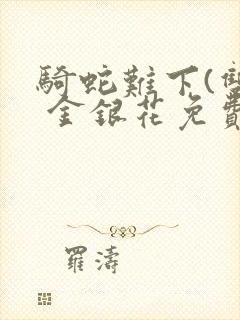 騎蛇難下(雙
金銀花免費
羅濤